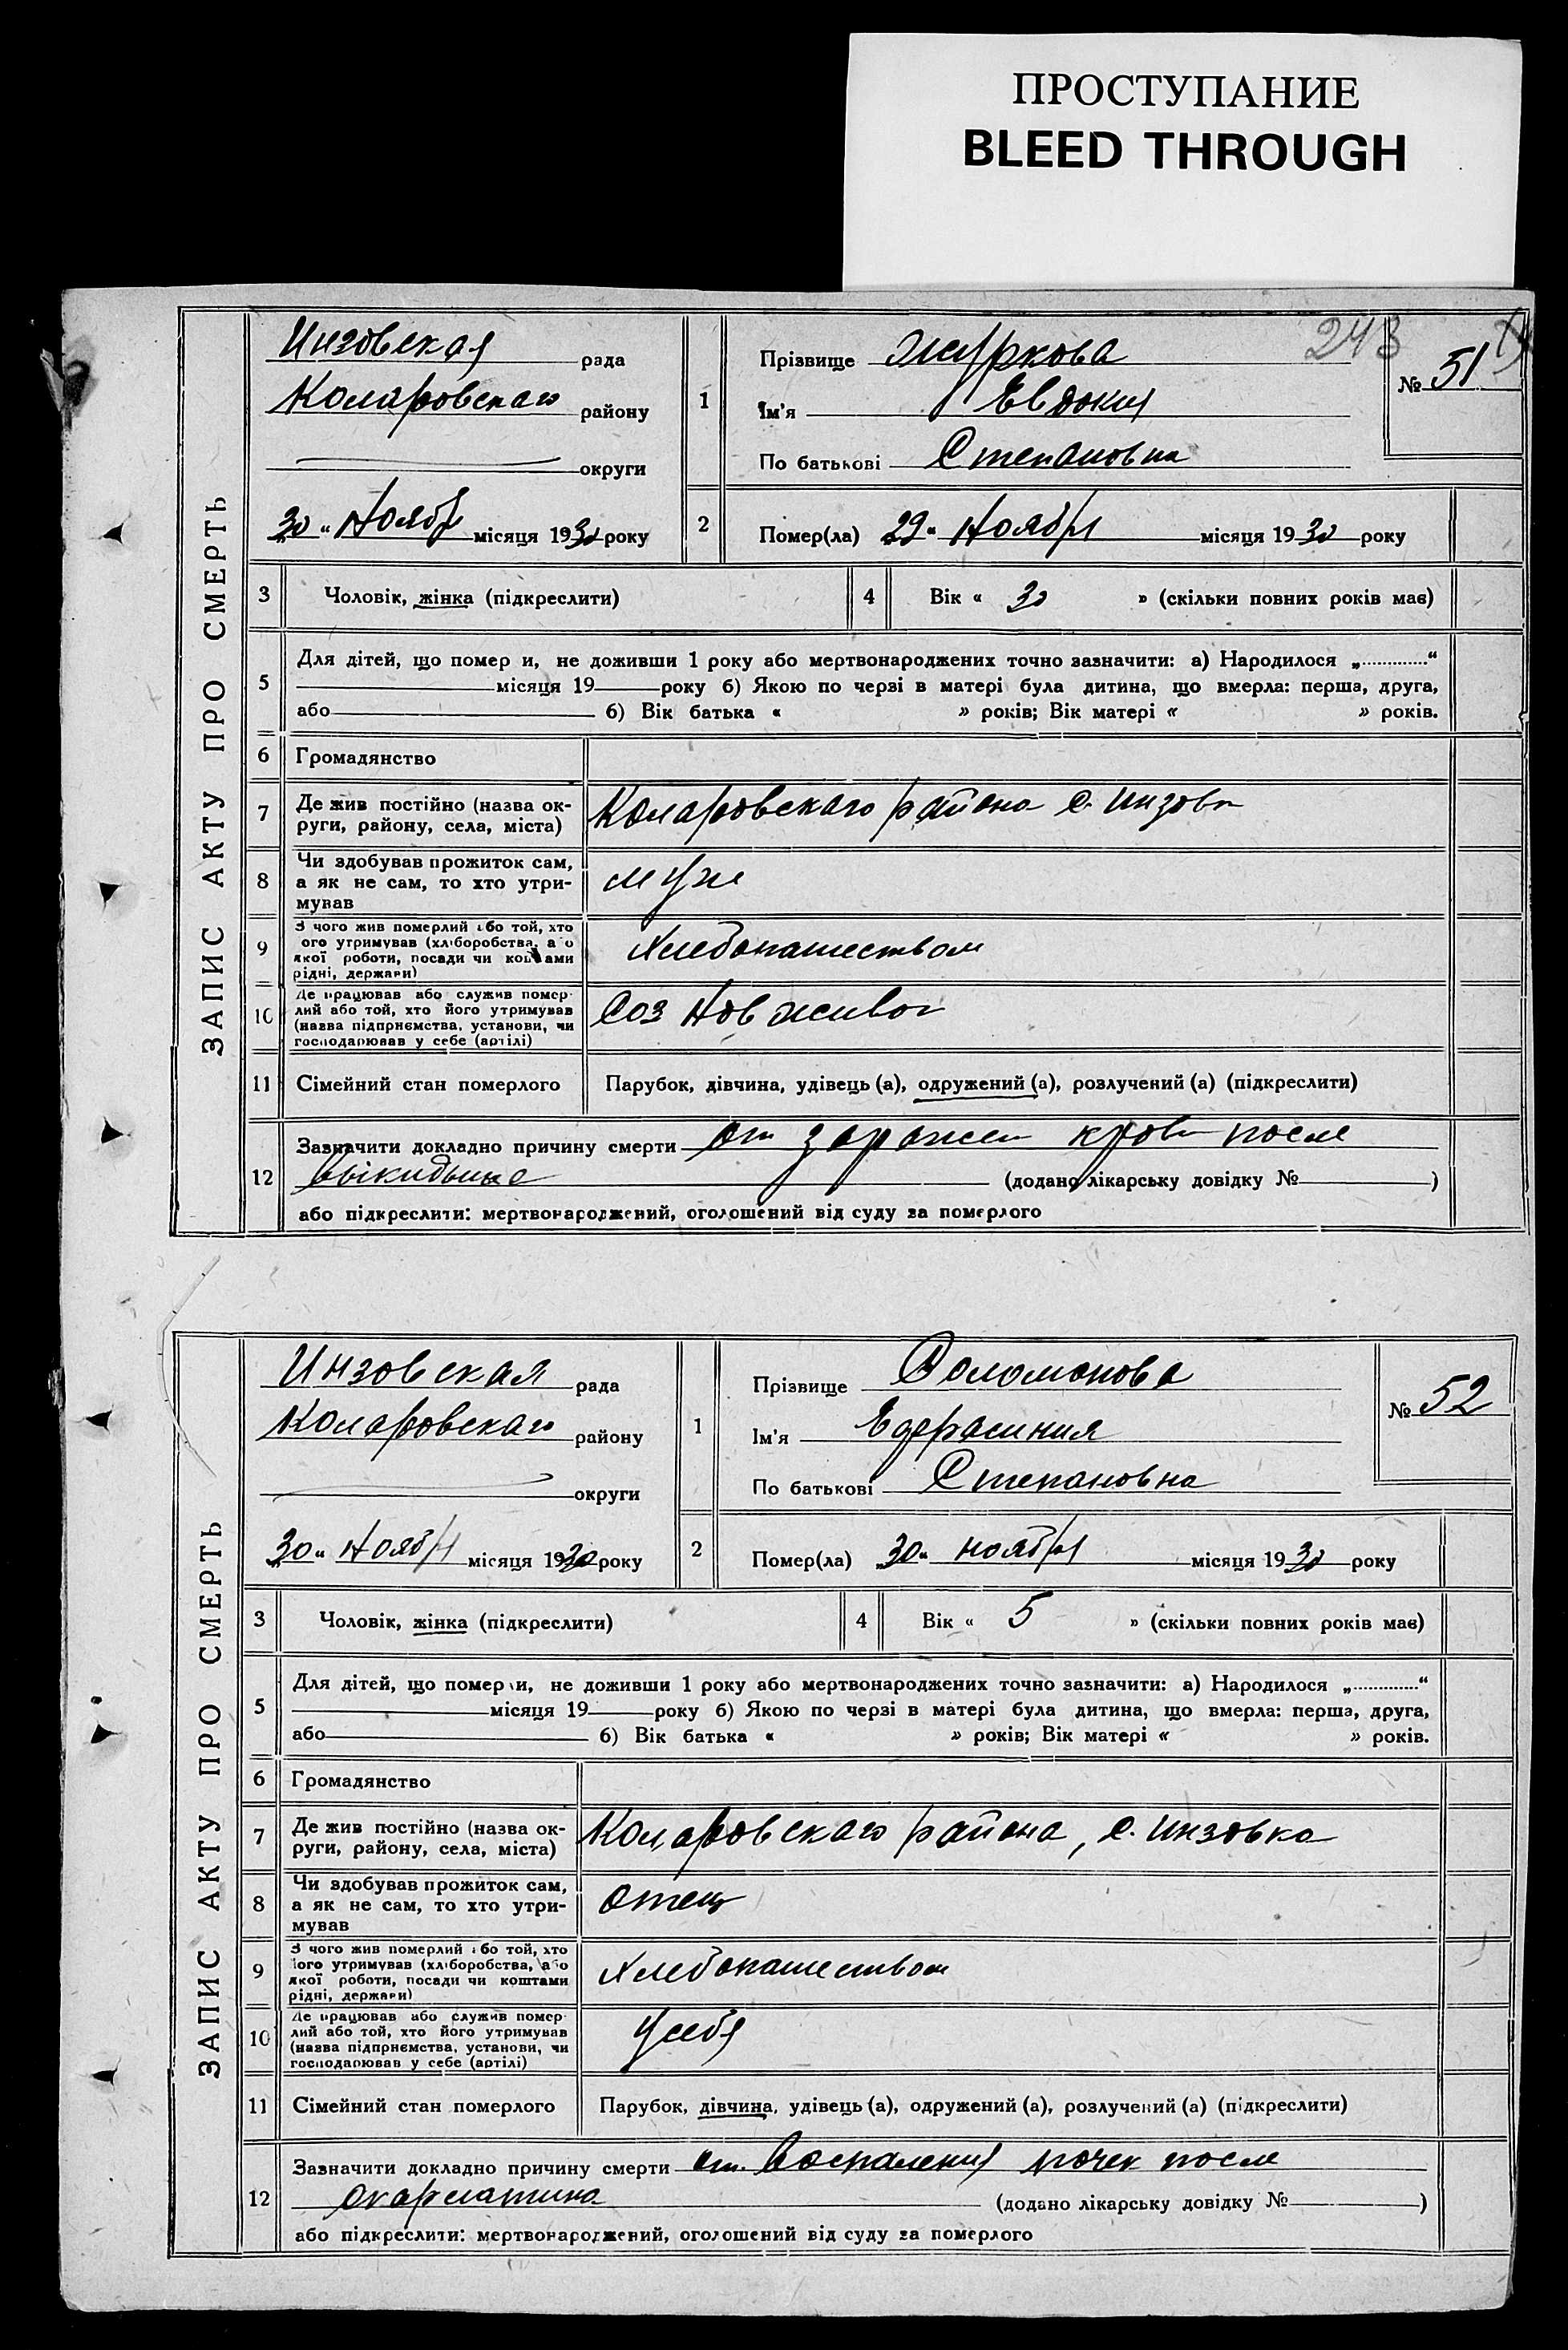 ПРОСТУПАНИЕ
BLEED THROUGH
243
ЗАПИС АКТУ ПРО СМЕРТЬ
Инзовская рада
Коларовскаго району
округи
„30“ Ноябр місяця 1930 року
1
Прізвище Журкова
Ім'я Евдокия
По батькові Степановна
№ 51
2
Помер(ла) „29“ Ноября місяця 1930 року
3 Чоловік, жінка (підкреслити)
4 Вік « 30 » (скільки повних років має)
5
Для дітей, що помер и, не доживши 1 року або мертвонароджених точно зазначити: а) Народилося „.............“
місяця 19 року б) Якою по черзі в матері була дитина, що вмерла: перша, друга,
або б) Вік батька « » років; Вік матері « » років.
6 Громадянство
7 Де жив постійно (назва ок-
руги, району, села, міста)
Коларовскаго района с. Инзовк
8 Чи здобував прожиток сам,
а як не сам, то хто утри-
мував
муж
9 З чого жив померлий або той, хто
ого утримував (хліборобства, або
якої роботи, посади чи коштами
рідні, держави)
Хлебопашеством
10 Де працював або служив помер-
лий або той, хто його утримував
(назва підприємства, установи, чи
господарював у себе (артілі)
Соз Нов живот
11 Сімейний стан померлого
Парубок, дівчина, удівець (а), одружений (а), розлучений (а) (підкреслити)
12
Зазначити докладно причину смерти от заражен крови после
выкидыша (додано лікарську довідку № )
або підкреслити: мертвонароджений, оголошений від суду за померлого
ЗАПИС АКТУ ПРО СМЕРТЬ
Инзовская рада
Коларовскаго району
округи
„30“ Ноября місяця 1930 року
1
Прізвище Соломонова
Ім'я Ефрасиния
По батькові Степановна
№ 52
2
Помер(ла) „30“ ноября місяця 1930 року
3 Чоловік, жінка (підкреслити)
4 Вік « 5 » (скільки повних років має)
5
Для дітей, що помер и, не доживши 1 року або мертвонароджених точно зазначити: а) Народилося „.............“
місяця 19 року б) Якою по черзі в матері була дитина, що вмерла: перша, друга,
або б) Вік батька « » років; Вік матері « » років.
6 Громадянство
7 Де жив постійно (назва ок-
руги, району, села, міста)
Коларовскаго района, с. Инзовка
8 Чи здобував прожиток сам,
а як не сам, то хто утри-
мував
отец
9 З чого жив померлий або той, хто
його утримував (хліборобства, або
якої роботи, посади чи коштами
рідні, держави)
Хлебопашеством
10 Де працював або служив помер-
лий або той, хто його утримував
(назва підприємства, установи, чи
господарював у себе (артілі)
У себя
11 Сімейний стан померлого
Парубок, дівчина, удівець (а), одружений (а), розлучений (а) (підкреслити)
12
Зазначити докладно причину смерти от воспаления почек после
скарлатина (додано лікарську довідку № )
або підкреслити: мертвонароджений, оголошений від суду за померлого